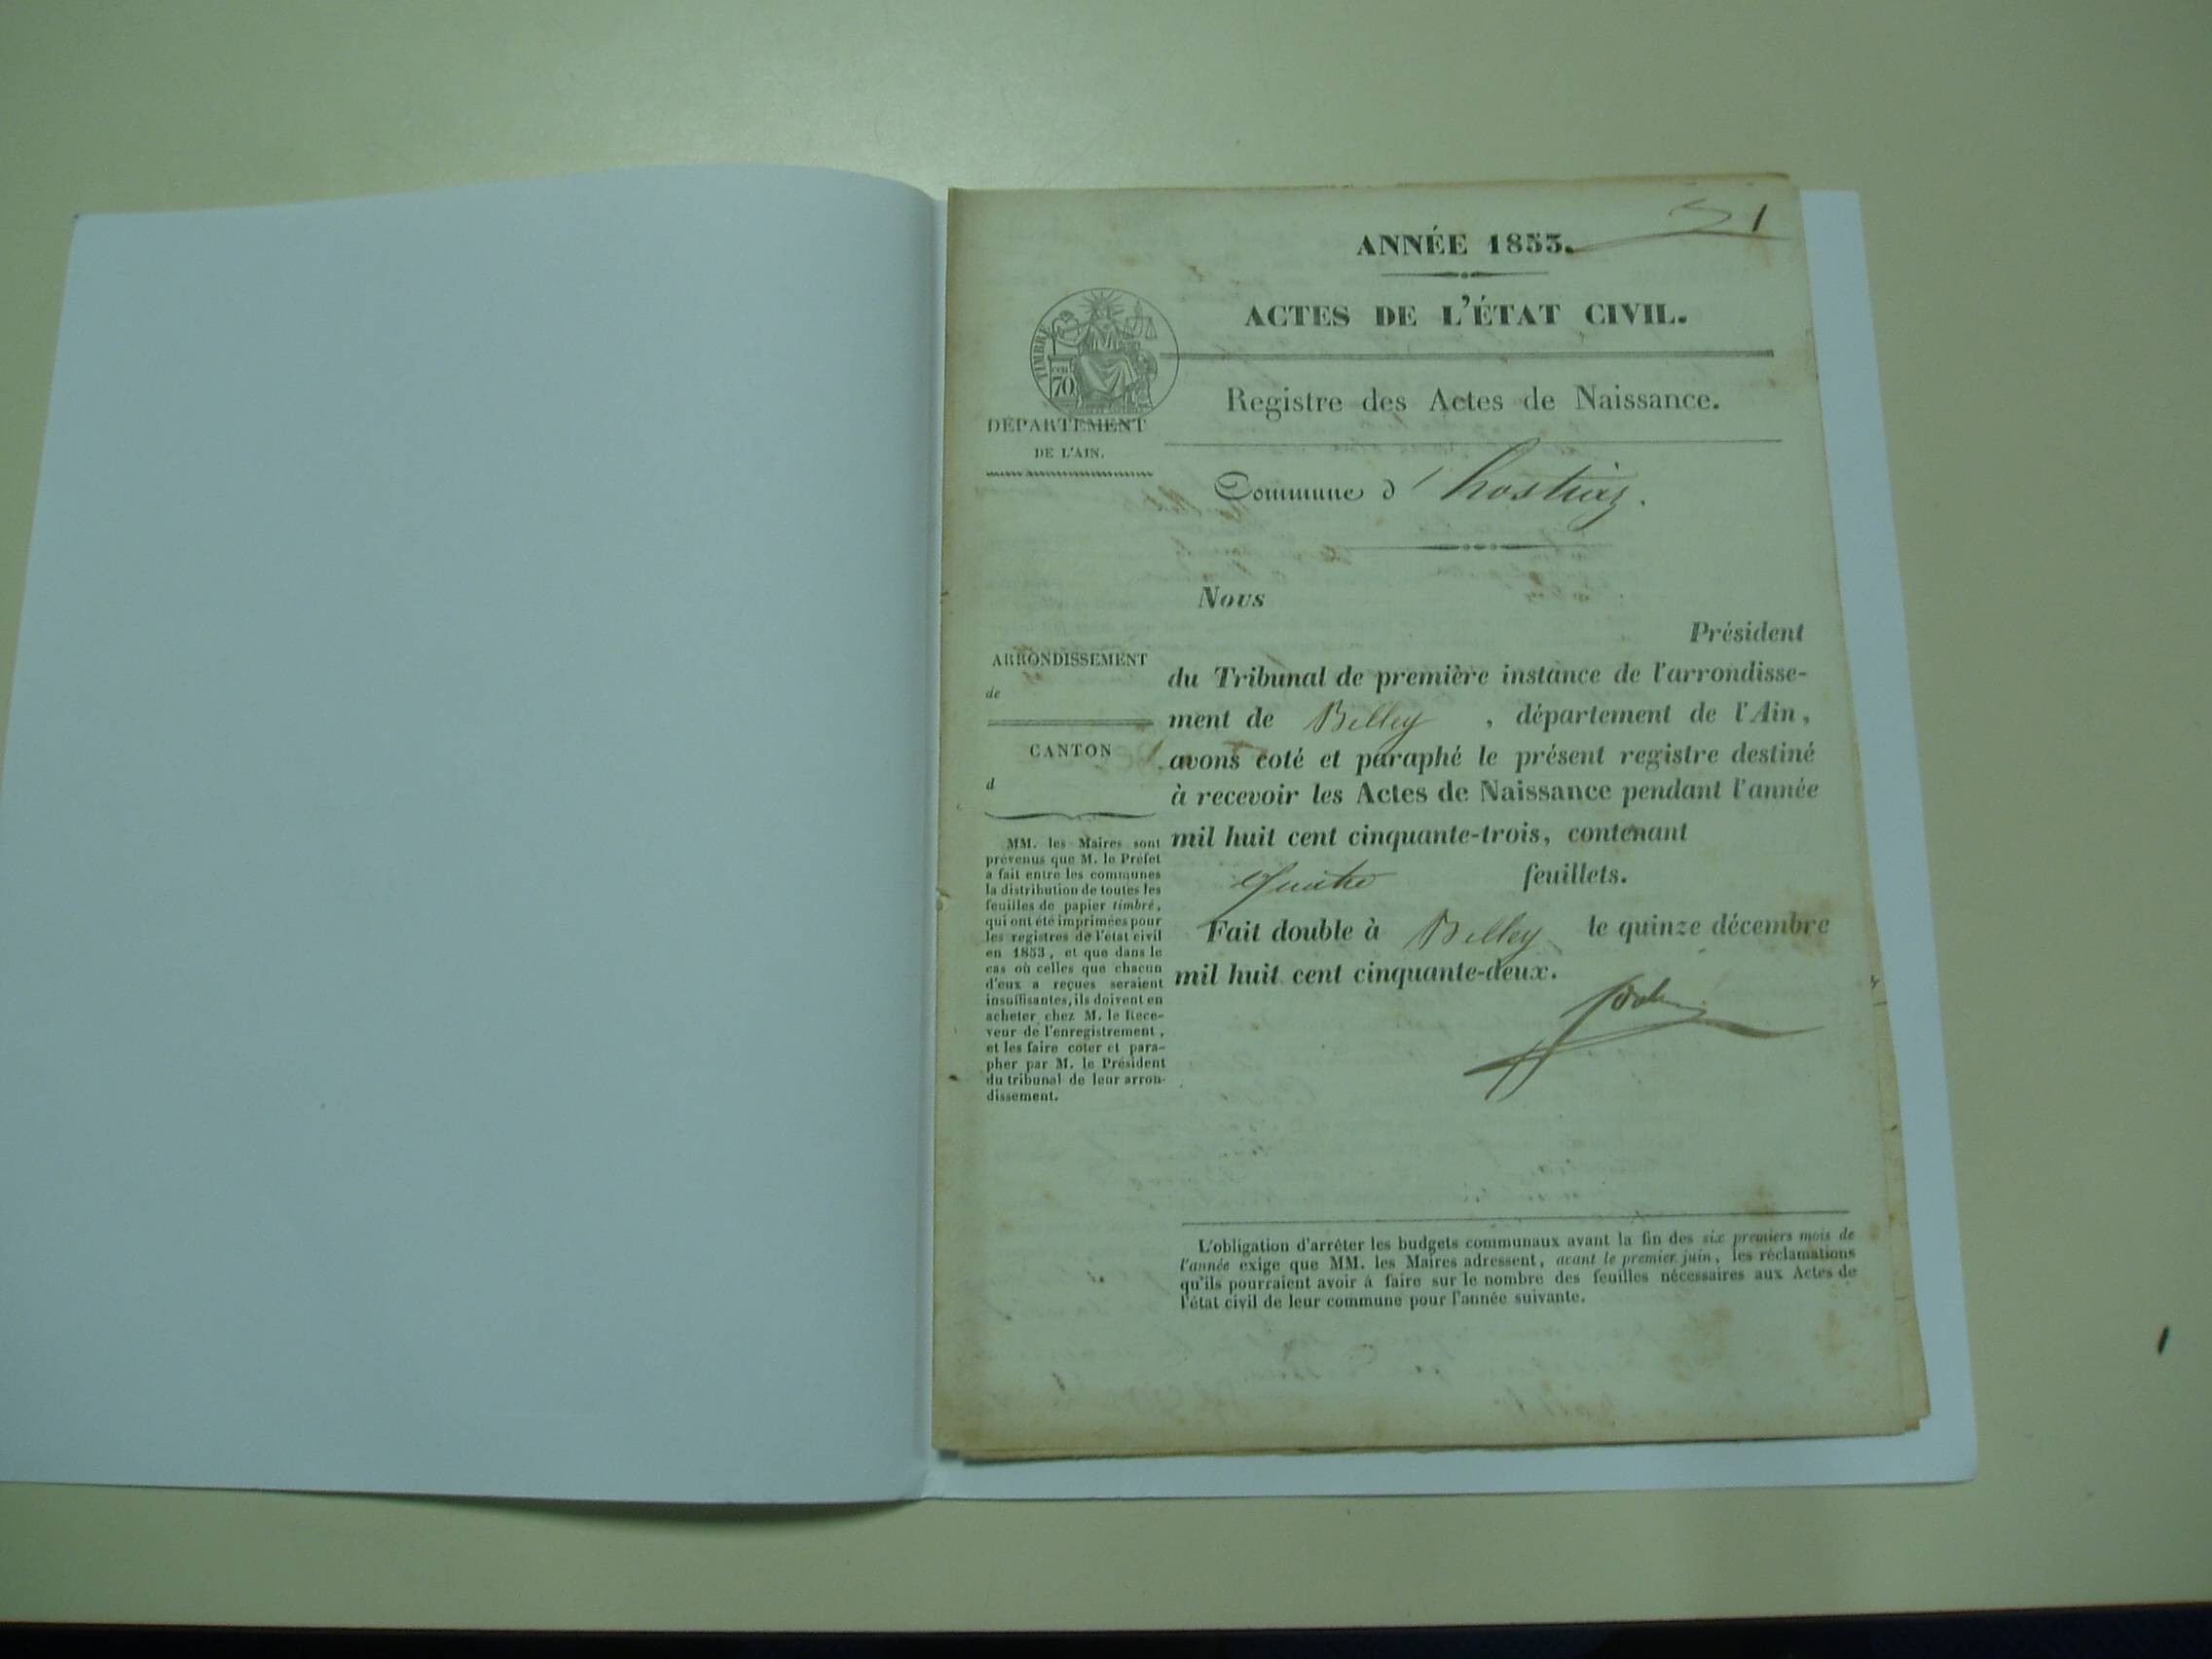 1
ANNÉE 1853.
ACTES DE L'ÉTAT CIVIL.
TIMBRE
70
DÉPARTEMENT
DE L'AIN.
Registre des Actes de Naissance.
Commune d'hostiaz.
Nous
Président
du Tribunal de première instance de l'arrondisse-
ment de Belley , département de l'Ain,
avons coté et paraphé le présent registre destiné
à recevoir les Actes de Naissance pendant l'année
mil huit cent cinquante-trois, contenant
quatre feuillets.
Fait double à Belley le quinze décembre
mil huit cent cinquante-deux.
ARRONDISSEMENT
de
CANTON
d
MM. les Maires sont
prévenus que M. le Préfet
a fait entre les communes
la distribution de toutes les
feuilles de papier timbré,
qui ont été imprimées pour
les registres de l'état civil
en 1853, et que dans le
cas où celles que chacun
d'eux a reçues seraient
insuffisantes, ils doivent en
acheter chez M. le Rece-
veur de l'enregistrement,
et les faire coter et para-
pher par M. le Président
du tribunal de leur arron-
dissement.
L'obligation d'arrêter les budgets communaux avant la fin des six premiers mois de
l'année exige que MM. les Maires adressent, avant le premier juin, les réclamations
qu'ils pourraient avoir à faire sur le nombre des feuilles nécessaires aux Actes de
l'état civil de leur commune pour l'année suivante.